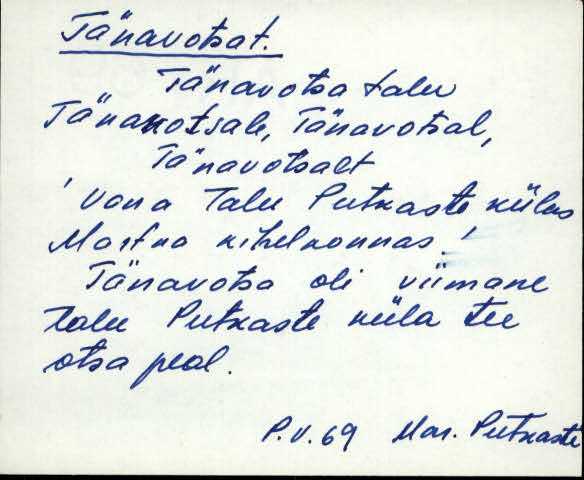 Tänavotsat.
Tänavotsa talu
Tänavotsale, Tänavotsal,
Tänavotsalt
' vana Talu Putkaste külas
Martna kihelkonnas.'
Tänavotsa oli viimane
talu Putkaste küla tee
otsa peal.
P.V.69 Mar. Putkaste